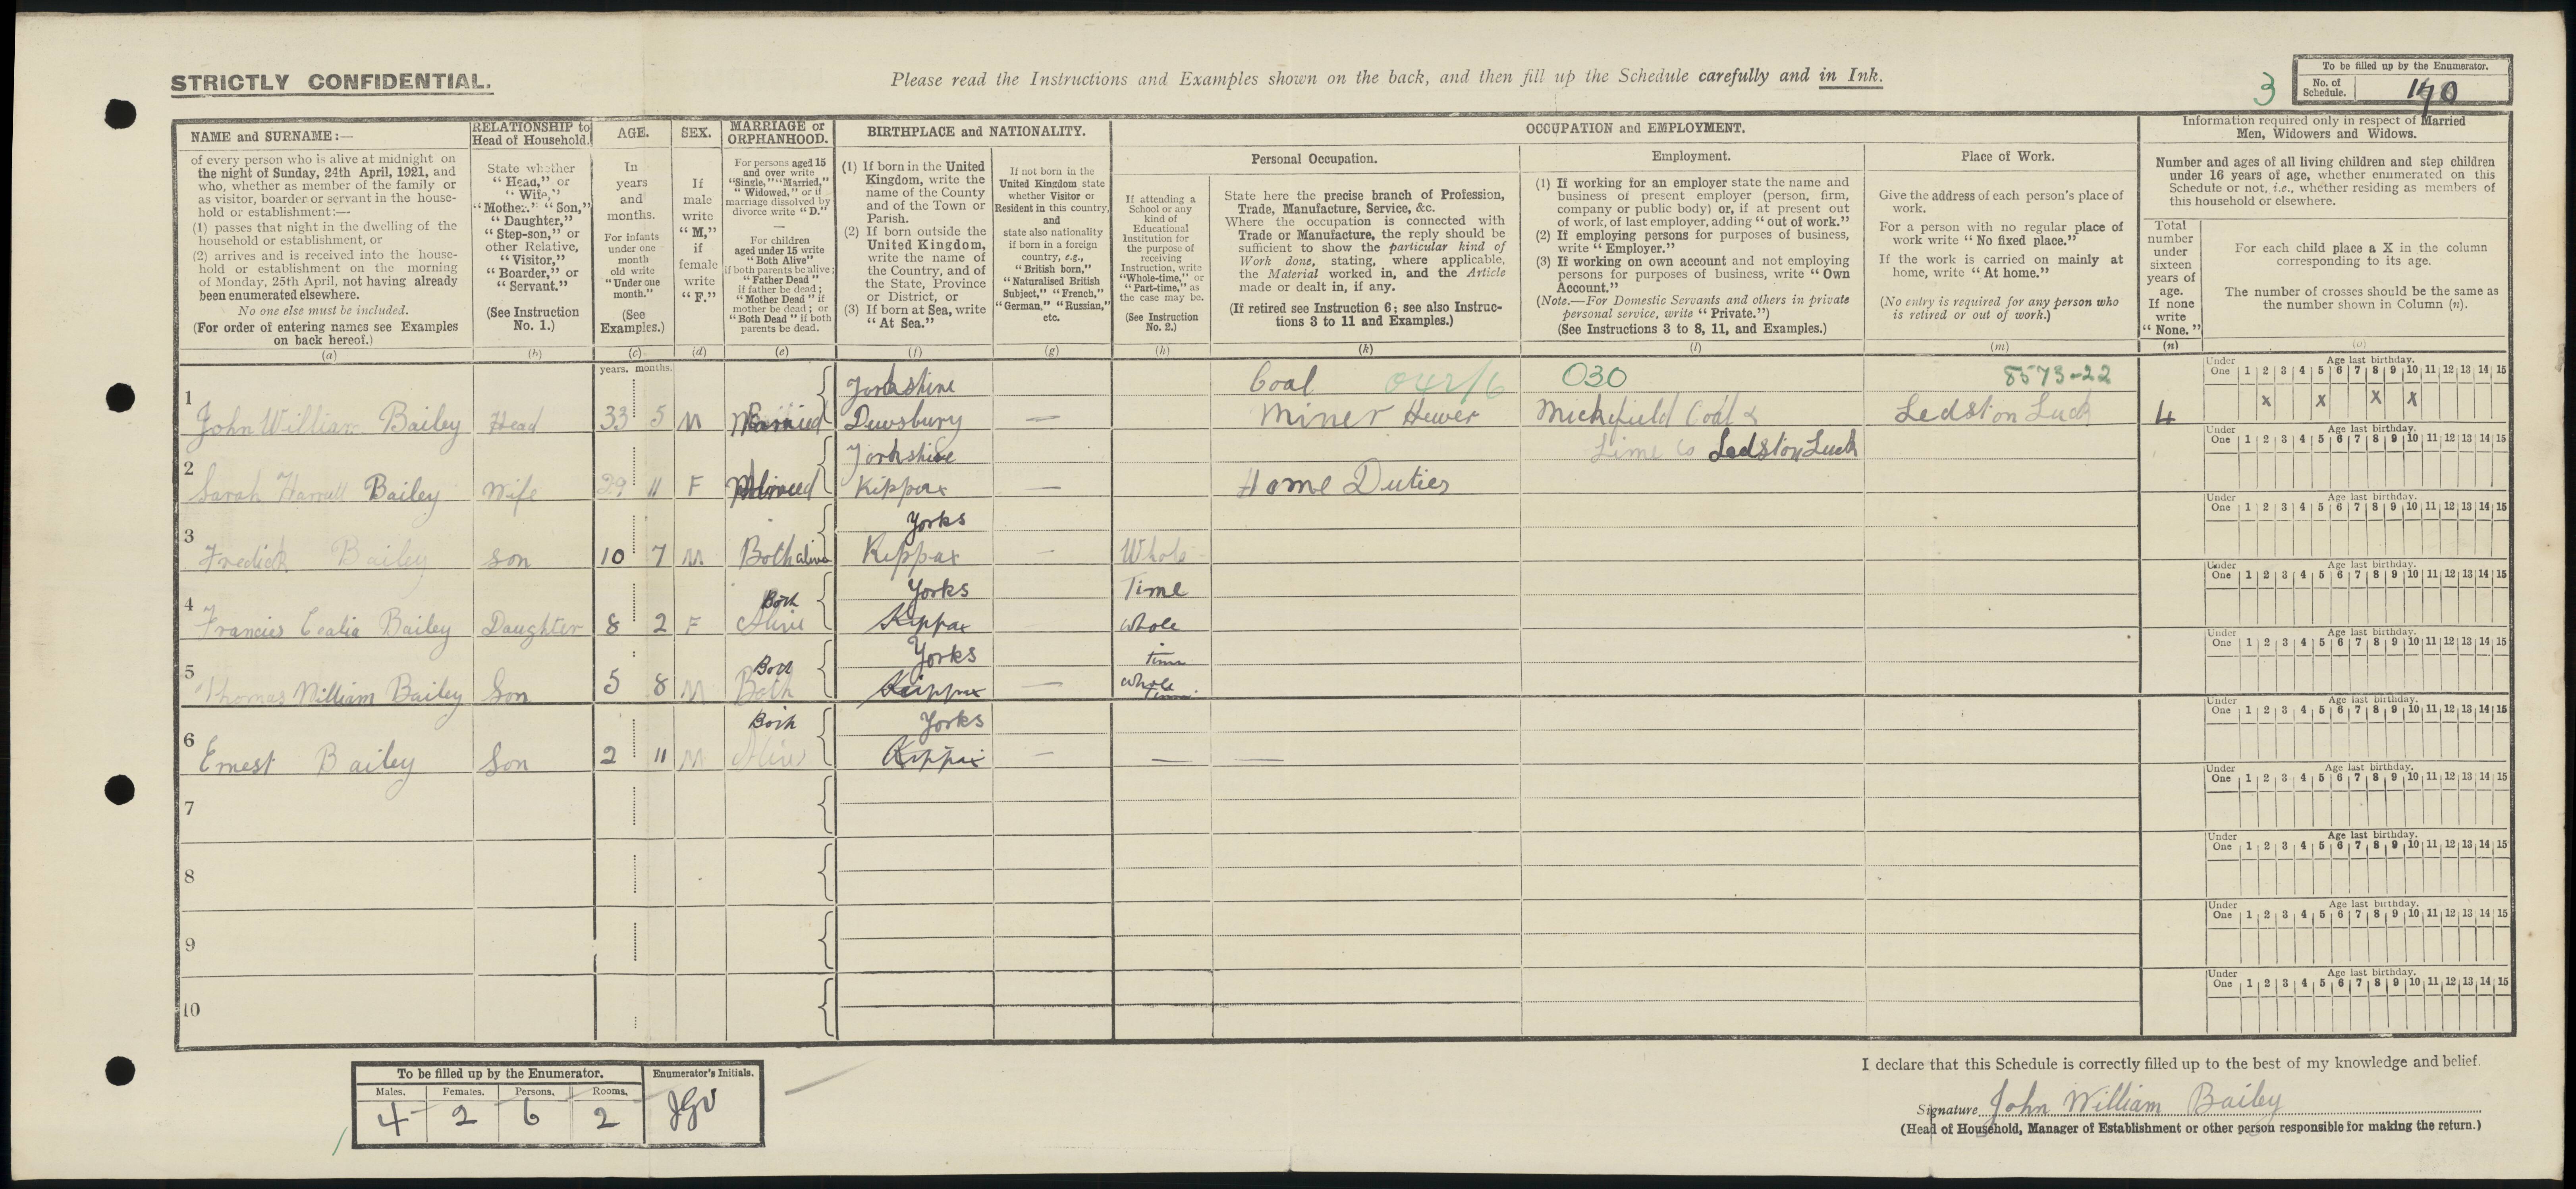 STRICTLY CONFIDENTIAL.
Please read the Instructions and Examples shown on the back, and then fill up the Schedule carefully and in Ink.
3
To be filled up by the Enumerator.
No. of Schedule. 140
NAME and SURNAME:—
of every person who is alive at midnight on
the night of Sunday, 24th April, 1921, and
who, whether as member of the family or
as visitor, boarder or servant in the house-
hold or establishment:—
(1) passes that night in the dwelling of the
household or establishment, or
(2) arrives and is received into the house-
hold or establishment on the morning
of Monday, 25th April, not having already
been enumerated elsewhere.
No one else must be included.
(For order of entering names see Examples
on back hereof.)
(a)
RELATIONSHIP to
Head of Household.
State whether
"Head," or
"Wife,"
"Mother," "Son,"
"Daughter,"
"Step-son," or
other Relative,
"Visitor,"
"Boarder," or
"Servant."
(See Instruction
No. 1.)
(b)
AGE.
In
years
and
months.
For infants
under one
month
old write
"Under one
month."
(See
Examples.)
(c)
years. months.
SEX.
If
male
write
"M,"
if
female
write
"F."
(d)
MARRIAGE or
ORPHANHOOD.
For persons aged 15
and over write
"Single," "Married,"
"Widowed," or if
marriage dissolved by
divorce write "D."
—
For children
aged under 15 write
"Both Alive"
if both parents be alive;
"Father Dead"
if father be dead;
"Mother Dead" if
mother be dead; or
"Both Dead" if both
parents be dead.
(e)
BIRTHPLACE and NATIONALITY.
(1) If born in the United
Kingdom, write the
name of the County
and of the Town or
Parish.
(2) If born outside the
United Kingdom,
write the name of
the Country, and of
the State, Province
or District, or
(3) If born at Sea, write
"At Sea."
(f)
If not born in the
United Kingdom state
whether Visitor or
Resident in this country,
and
state also nationality
if born in a foreign
country, e.g.,
"British born,"
"Naturalised British
Subject," "French,"
"German," "Russian,"
etc.
(g)
OCCUPATION and EMPLOYMENT.
If attending a
School or any
kind of
Educational
Institution for
the purpose of
receiving
Instruction, write
"Whole-time," or
"Part-time," as
the case may be.
(See Instruction
No. 2.)
(h)
Personal Occupation.
State here the precise branch of Profession,
Trade, Manufacture, Service, &c.
Where the occupation is connected with
Trade or Manufacture, the reply should be
sufficient to show the particular kind of
Work done, stating, where applicable,
the Material worked in, and the Article
made or dealt in, if any.
(If retired see Instruction 6; see also Instruc-
tions 3 to 11 and Examples.)
(k)
Employment.
(1) If working for an employer state the name and
business of present employer (person, firm,
company or public body) or, if at present out
of work, of last employer, adding "out of work."
(2) If employing persons for purposes of business,
write "Employer."
(3) If working on own account and not employing
persons for purposes of business, write "Own
Account."
(Note.—For Domestic Servants and others in private
personal service, write "Private.")
(See Instructions 3 to 8, 11, and Examples.)
(l)
Place of Work.
Give the address of each person's place of
work.
For a person with no regular place of
work write "No fixed place."
If the work is carried on mainly at
home, write "At home."
(No entry is required for any person who
is retired or out of work.)
(m)
Information required only in respect of Married
Men, Widowers and Widows.
Number and ages of all living children and step children
under 16 years of age, whether enumerated on this
Schedule or not, i.e., whether residing as members of
this household or elsewhere.
Total
number
under
sixteen
years of
age.
If none
write
"None."
(n)
For each child place a X in the column
corresponding to its age.
The number of crosses should be the same as
the number shown in Column (n).
(o)
Under One Age last birthday. 1 2 3 4 5 6 7 8 9 10 11 12 13 14 15
1 Yorkshire Coal 042/6 030 8573-22
John William Bailey Head 33 5 M Married Dewsbury — Miner Hewer Micklefield Coal & Ledston Luck 4 X X X X
Under One Age last birthday. 1 2 3 4 5 6 7 8 9 10 11 12 13 14 15
2 Yorkshire Lime Co Ledston Luck
Sarah Bailey Wife 29 11 F Kippax — Home Duties
Under One Age last birthday. 1 2 3 4 5 6 7 8 9 10 11 12 13 14 15
3 Yorks
Fredick Bailey Son 10 7 M Both alive Kippax — Whole
Under One Age last birthday. 1 2 3 4 5 6 7 8 9 10 11 12 13 14 15
4 Both Yorks Time
Francies Cealia Bailey Daughter 8 2 F Alive Kippax Whole
Under One Age last birthday. 1 2 3 4 5 6 7 8 9 10 11 12 13 14 15
5 Both Yorks time
Thomas William Bailey Son 5 8 M Both Kippax — Whole Time
Under One Age last birthday. 1 2 3 4 5 6 7 8 9 10 11 12 13 14 15
6 Both Yorks
Ernest Bailey Son 2 11 M Alive Kippax — — —
Under One Age last birthday. 1 2 3 4 5 6 7 8 9 10 11 12 13 14 15
7
Under One Age last birthday. 1 2 3 4 5 6 7 8 9 10 11 12 13 14 15
8
Under One Age last birthday. 1 2 3 4 5 6 7 8 9 10 11 12 13 14 15
9
Under One Age last birthday. 1 2 3 4 5 6 7 8 9 10 11 12 13 14 15
10
To be filled up by the Enumerator. Enumerator's Initials.
Males. Females. Persons. Rooms.
4 2 6 2
I declare that this Schedule is correctly filled up to the best of my knowledge and belief.
Signature John William Bailey
(Head of Household, Manager of Establishment or other person responsible for making the return.)